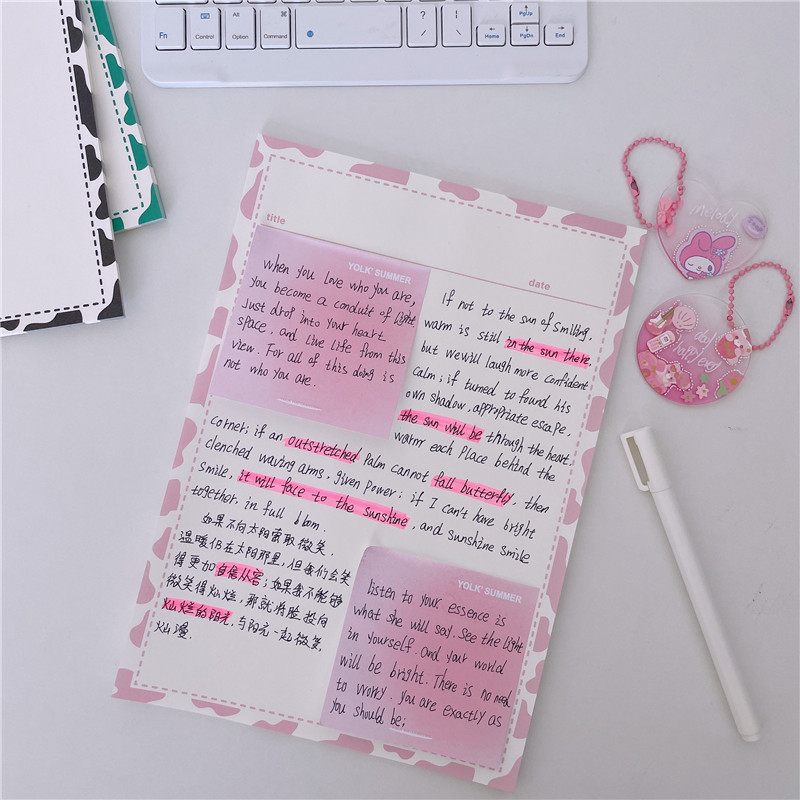 Fn
Control
Alt
Option
Command
?
/
Home
PgUp
PgDn
End
title
date
YOLK' SUMMER
When you love who you are,
you become a conduit of light
Just drop into your heart
space, and live life from this
view. For all of this doing is
not who you are.
If not to the sun of smiling,
warm is still in the sun there,
but we will laugh more confident
calm; if turned to found his
own shadow, appropriate escape,
the sun will be through the heart,
warm each place behind the
corner; if an outstretched palm cannot fall butterfly, then
clenched waving arms, given power; if I can't have bright
smile, it will face to the sunshine, and sunshine smile
together, in full bloom.
如果不向太阳索取微笑,
温暖仍在太阳那里,但我们会笑
得更加自信从容;如果我不能够
微笑得灿烂,那就将脸投向
灿烂的阳光,与阳光一起微笑,
灿漫.
YOLK' SUMMER
listen to your essence is
what she will say. See the light
in yourself. And your world
will be bright. There is no need
to worry. you are exactly as
you should be;
Melody